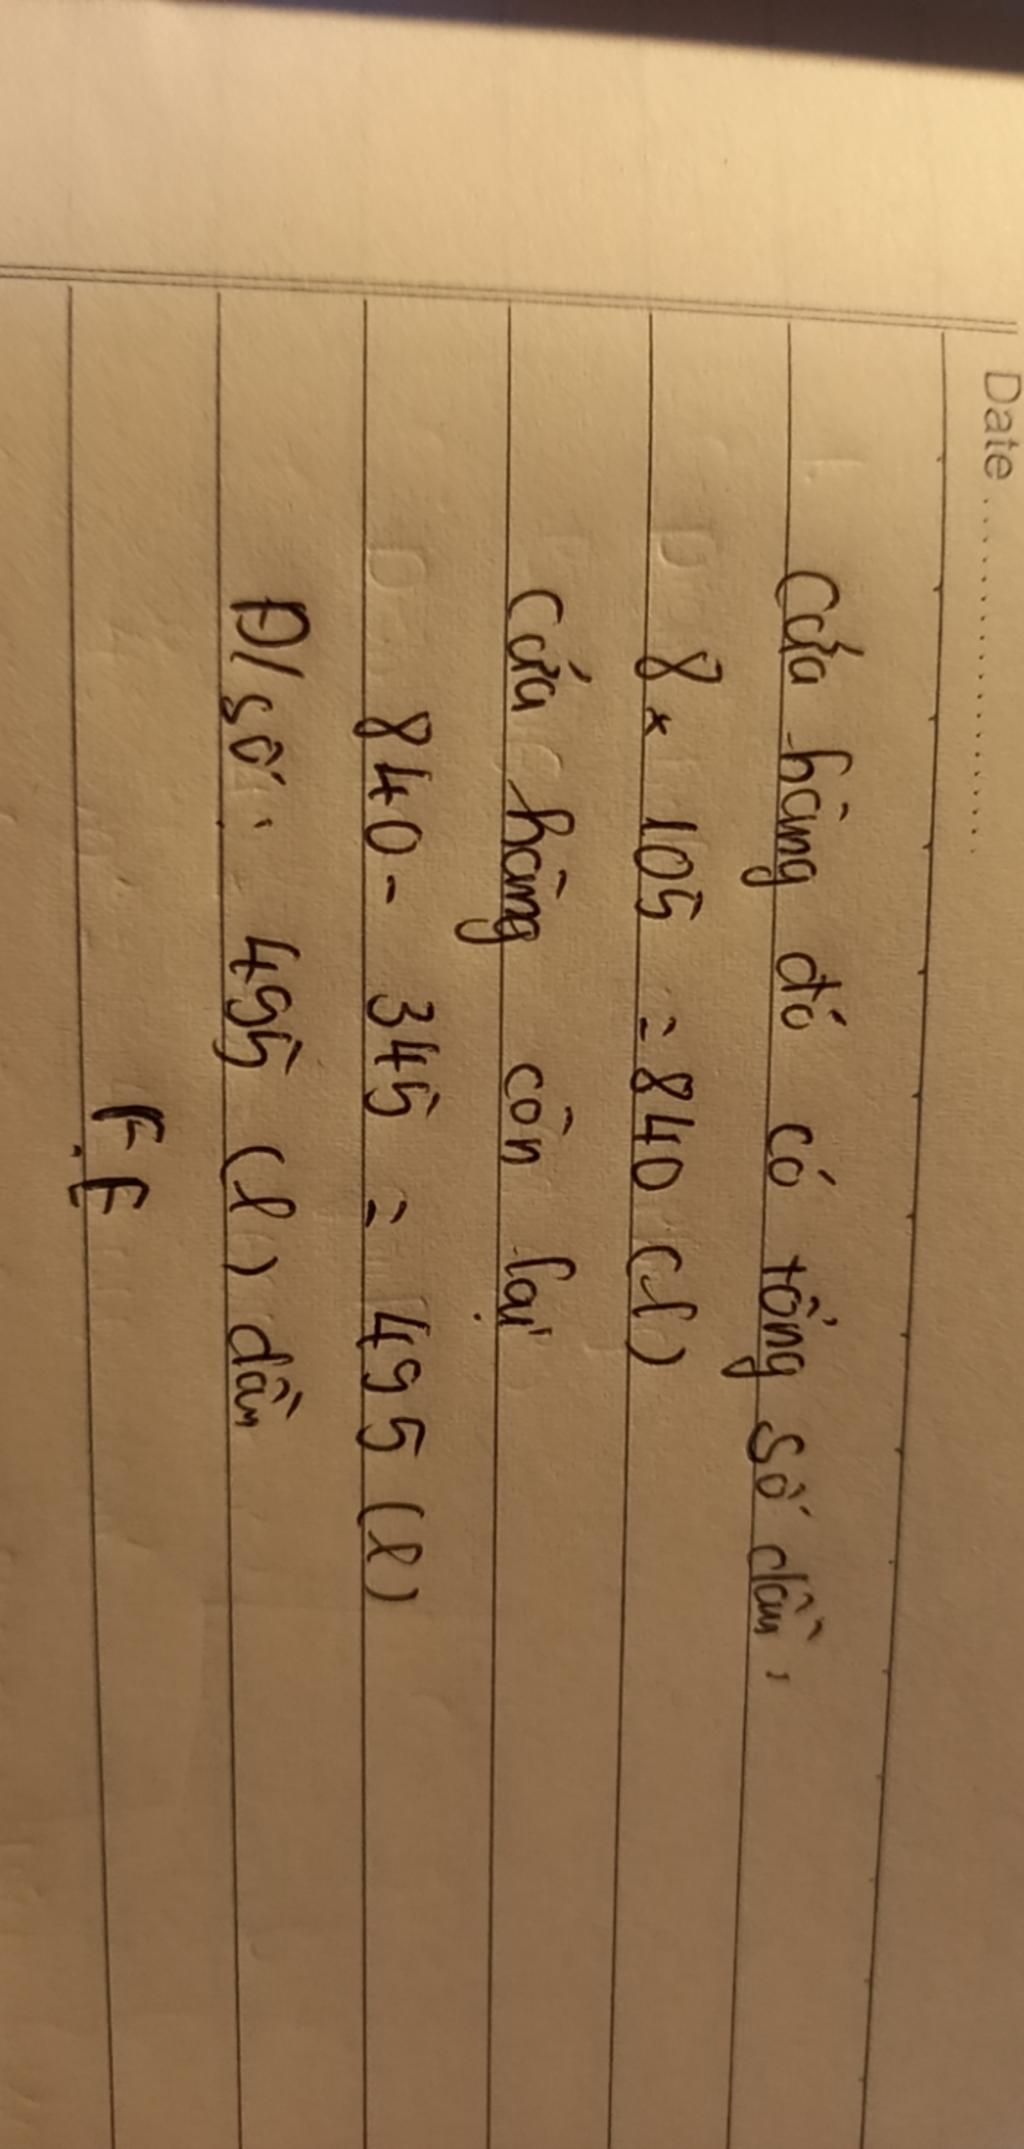 Date ....................
Cửa hàng đó có tổng số dầu:
8 x 105 = 840 (l)
Cửa hàng còn lại
840 - 345 = 495 (l)
Đ/số: 495 (l) dầu
F.E